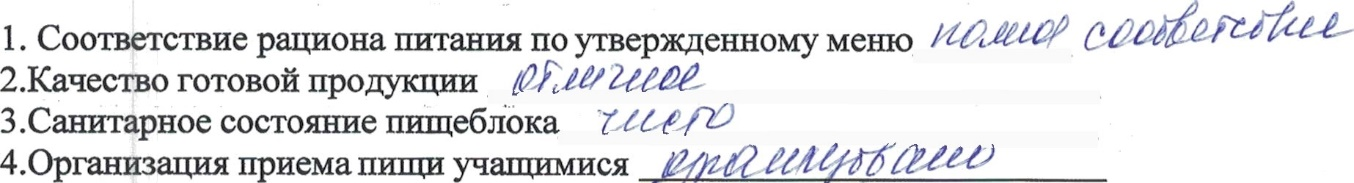 1. Соответствие рациона питания по утвержденному меню полное соответствие
2.Качество готовой продукции отличное
3.Санитарное состояние пищеблока чисто
4.Организация приема пищи учащимися организовано